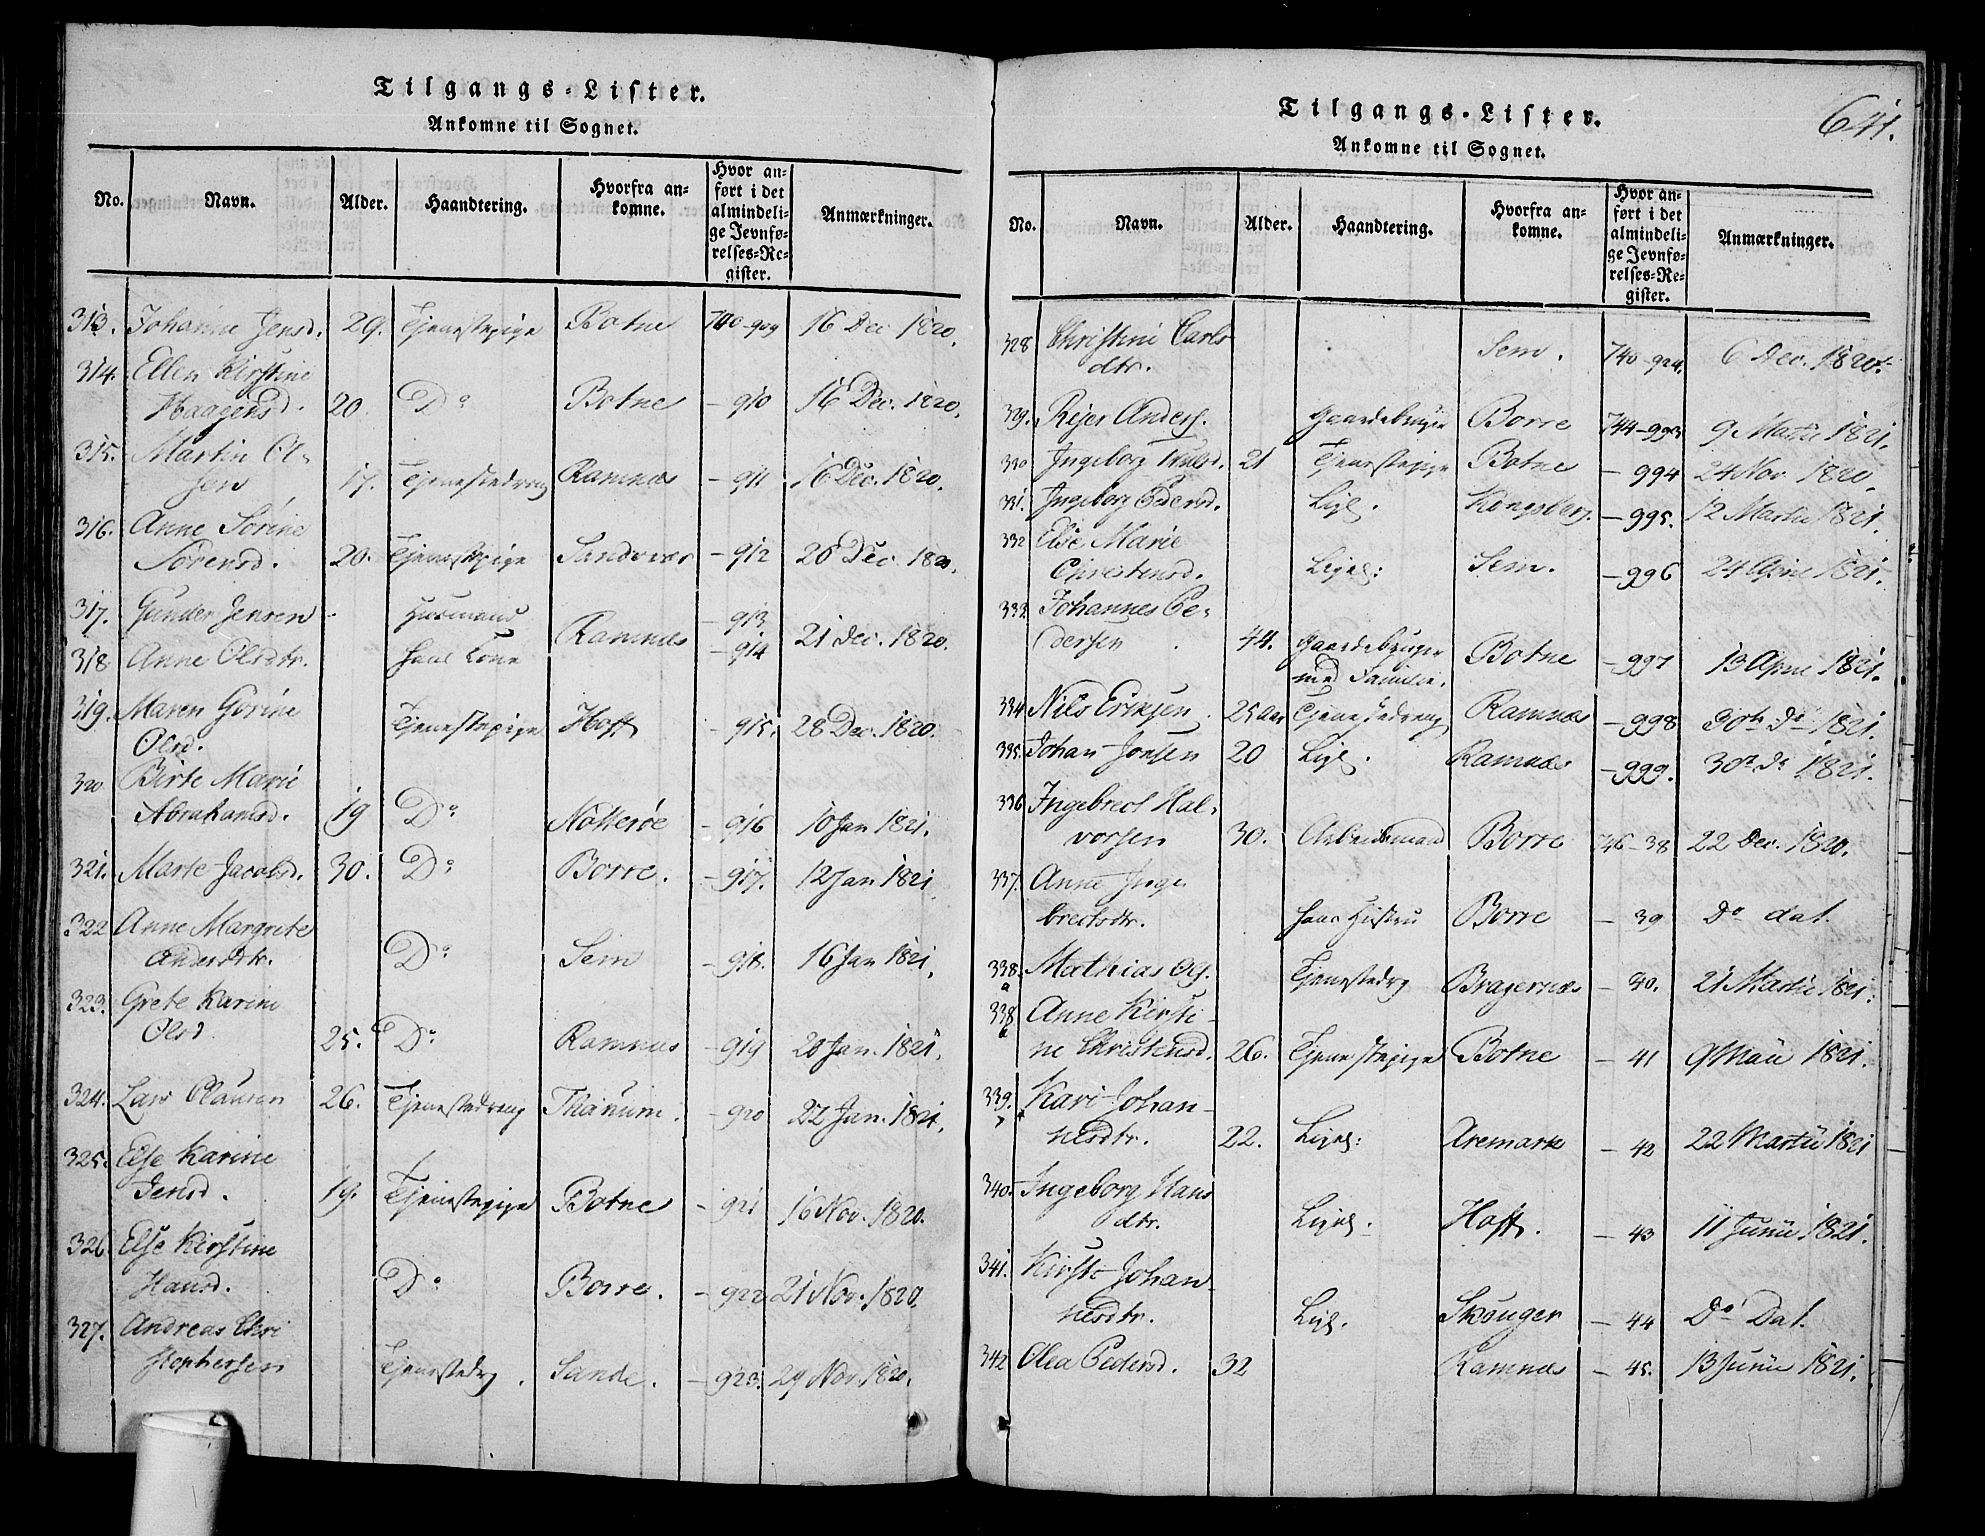 Tilgangs-Lister.
Ankomne til Sognet.
No. Navn. Alder. Haandtering. Hvorfra ankomne. Hvor anført i det almindelige Jevnførelses-Register. Anmærkninger.
313. Johanne Jensd. 29. Tjenestepige Botne 740-909 16 Dec. 1820.
314. Ellen Kirstine
Haagensd. 20. Do Botne - 910 16 Dec. 1820.
315. Martin Ol-
sen 17. Tjenestedreng Ramnæs - 911 16 Dec. 1820.
316. Anne Sörine
Sörensd. 20. Tjenestepige - 912 20 Dec. 1820.
317. Gunder Jensen Huusmand - 913
318 Anne Olsdtr. hans Kone Ramnæs - 914 21 Dec. 1820.
319. Maren Gorine
Olsd. Tjenestepige Hoff - 915. 28 Dec. 1820.
320 Birte Marie
Abrahamsd. 19 Do Nötteröe - 916 10 Jan 1821.
321. Marte Jacobsd. 30. Do Borre. - 917. 12 Jan 1821
322 Anne Margrete
Andersdtr. Do Sem - 918. 16 Jan 1821.
323. Grete Karine
Olsd 25. Do Ramnæs - 919 20 Jan. 1821.
324. Lars Olausen 26. Tjenestedreng Thanum. - 920 22 Jan. 1821.
325. Else Karine
Jensd. 19. Tjenestepige Botne - 921 16 Nov. 1820.
326 Else Kirstine
Hansd. Do Borre. - 922 21 Nov. 1820.
327. Andreas Chri
stophersen Tjenestedrg. Sande. - 923. 29 Nov. 1820.
641.
Tilgangs-Lister.
Ankomne til Sognet.
No. Navn. Alder. Haandtering. Hvorfra ankomne. Hvor anført i det almindelige Jevnførelses-Register. Anmærkninger.
328 Christine Carls
dtr. Sem. 740-924. 6 Dec. 1820.
329. Rejer Anders. Gaardebruger Borre 744-993 9 Martii 1821.
330 Ingeborg 21 Tjenestepige Botne - 994 24 Nov 1820.
331. Ingeborg Pedersd. Ligl. Kongsberg. - 995. 12 Martii 1821.
332 Else Marie
Christensd. Ligel: Sem. - 996 24 April 1821.
333. Johannes Pe-
dersen 44. Gaardebruger
med Familie. Botne - 997 13 April 1821.
334 Nils Eriksen 25 Aar Tjenestedreng Ramnæs - 998 30te Do 1821.
335. Johan Jonsen 20 Ligl. Ramnæs - 999. 30te Do 1821.
336 Ingebret Hal-
vorsen 30. Arbeidsmand Borre 746-38 22 Dec. 1820.
337. Anne Inge
bretsdtr. hans Hustru Borre - 39 Do dat.
338. Mathias Ols. Tjenestedrg Bragernæs - 40. 21 Martii 1821.
a
338 Anne Kirsti-
ne Christensd. 26. Tjenestepige Botne - 41 9 Maii 1821.
339. Kari Johan-
nesdtr. 22. Ligel: Aremark - 42 22 Martii 1821
340. Ingeborg Hans
dtr. Ligel. Hoff. - 43 11 Junii 1821.
341. Kirste Johan
nesdtr. Ligl. Skouger - 44 Do Dat.
342 Olea Pedersd. 32 Ramnæs - 45. 13 Junii 1821.